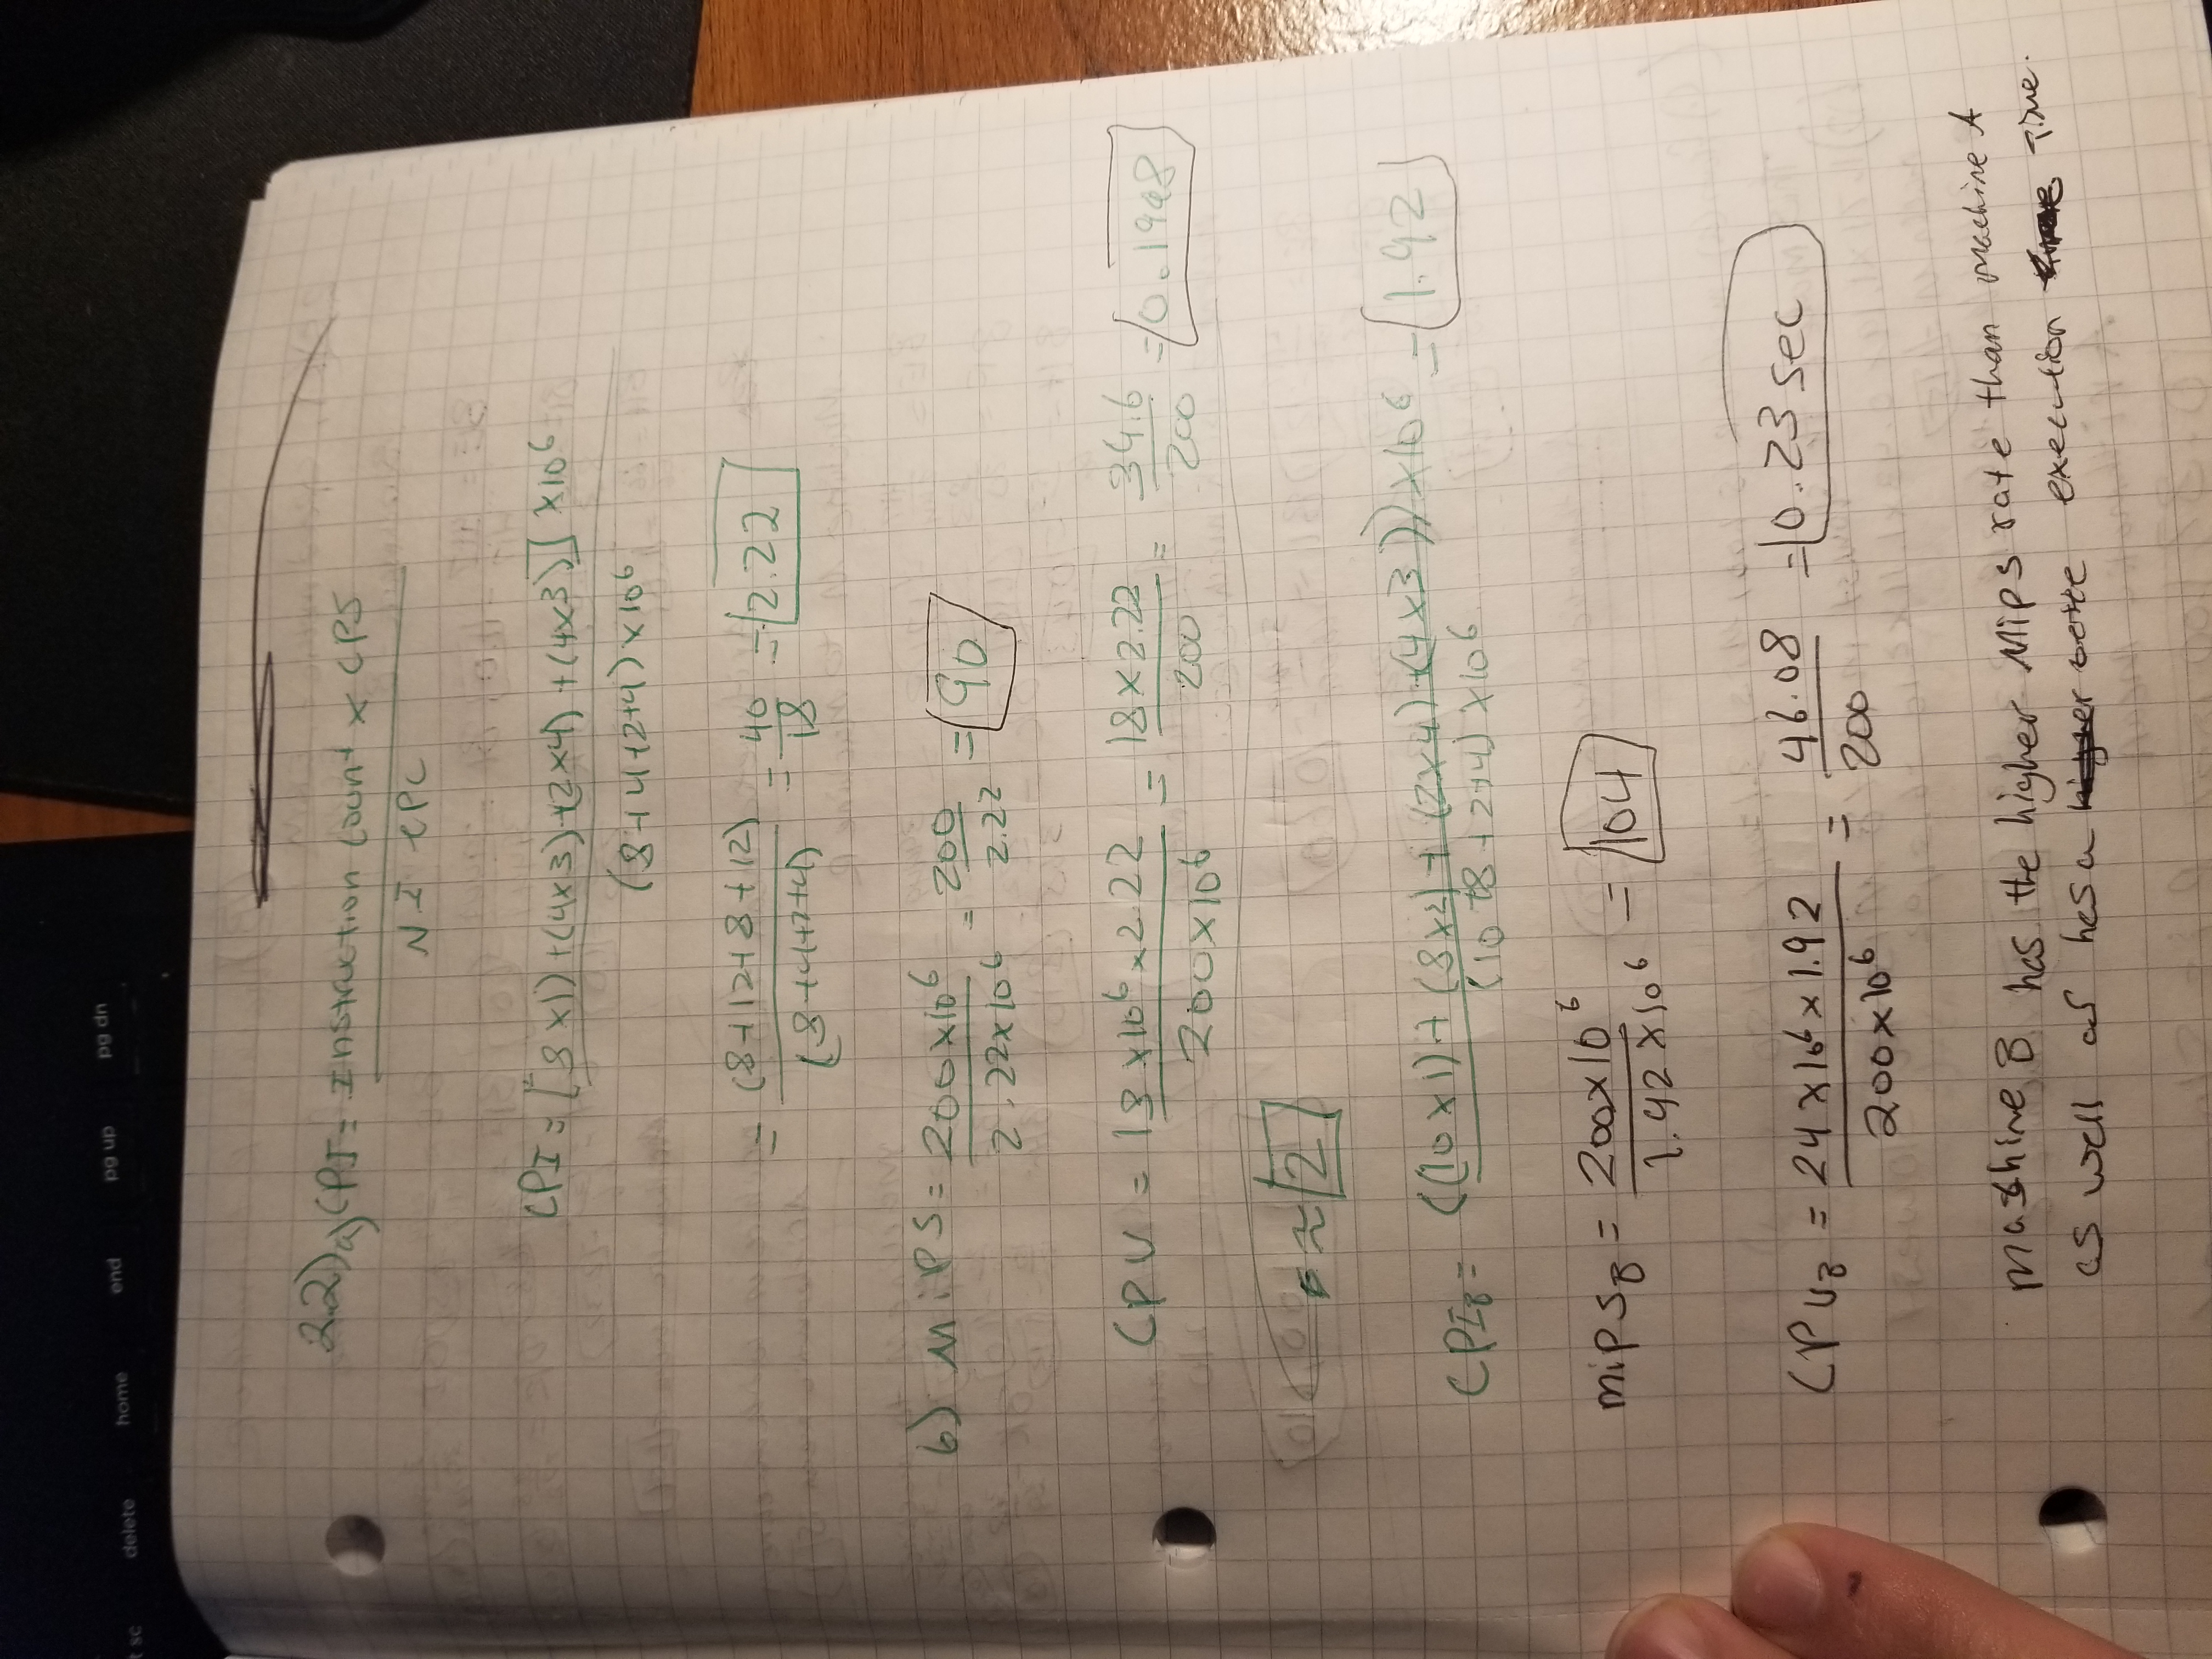 t sc delete home end pg up pg dn
2.2) a) CPI = Instruction Count x CPS
N I CPC
CPI = [8 x 1) + (4x3) + (2x4) + (4x3)] x10^6
(8+4+2+4) x 10^6
= (8+12+8+12) / (8+4+2+4) = 40/18 = 2.22
b) MiPS = 200x10^6 / 2.22x10^6 = 200/2.22 = 90
CPU = 18 x10^6 x 2.22 / 200x10^6 = 18x2.22 / 200 = 34.6 / 200 = 0.1998
≈ 2
CPI_B = ((10x1) + (8x2) + (2x4) + (4x3)) x10^6 / (10+8+2+4) x10^6 = 1.92
mips_B = 200x10^6 / 1.92x10^6 = 104
CPU_B = 24x10^6 x 1.92 / 200x10^6 = 46.08 / 200 = 0.23 sec
machine B has the higher Mips rate than machine A
as well as has a execution Time.